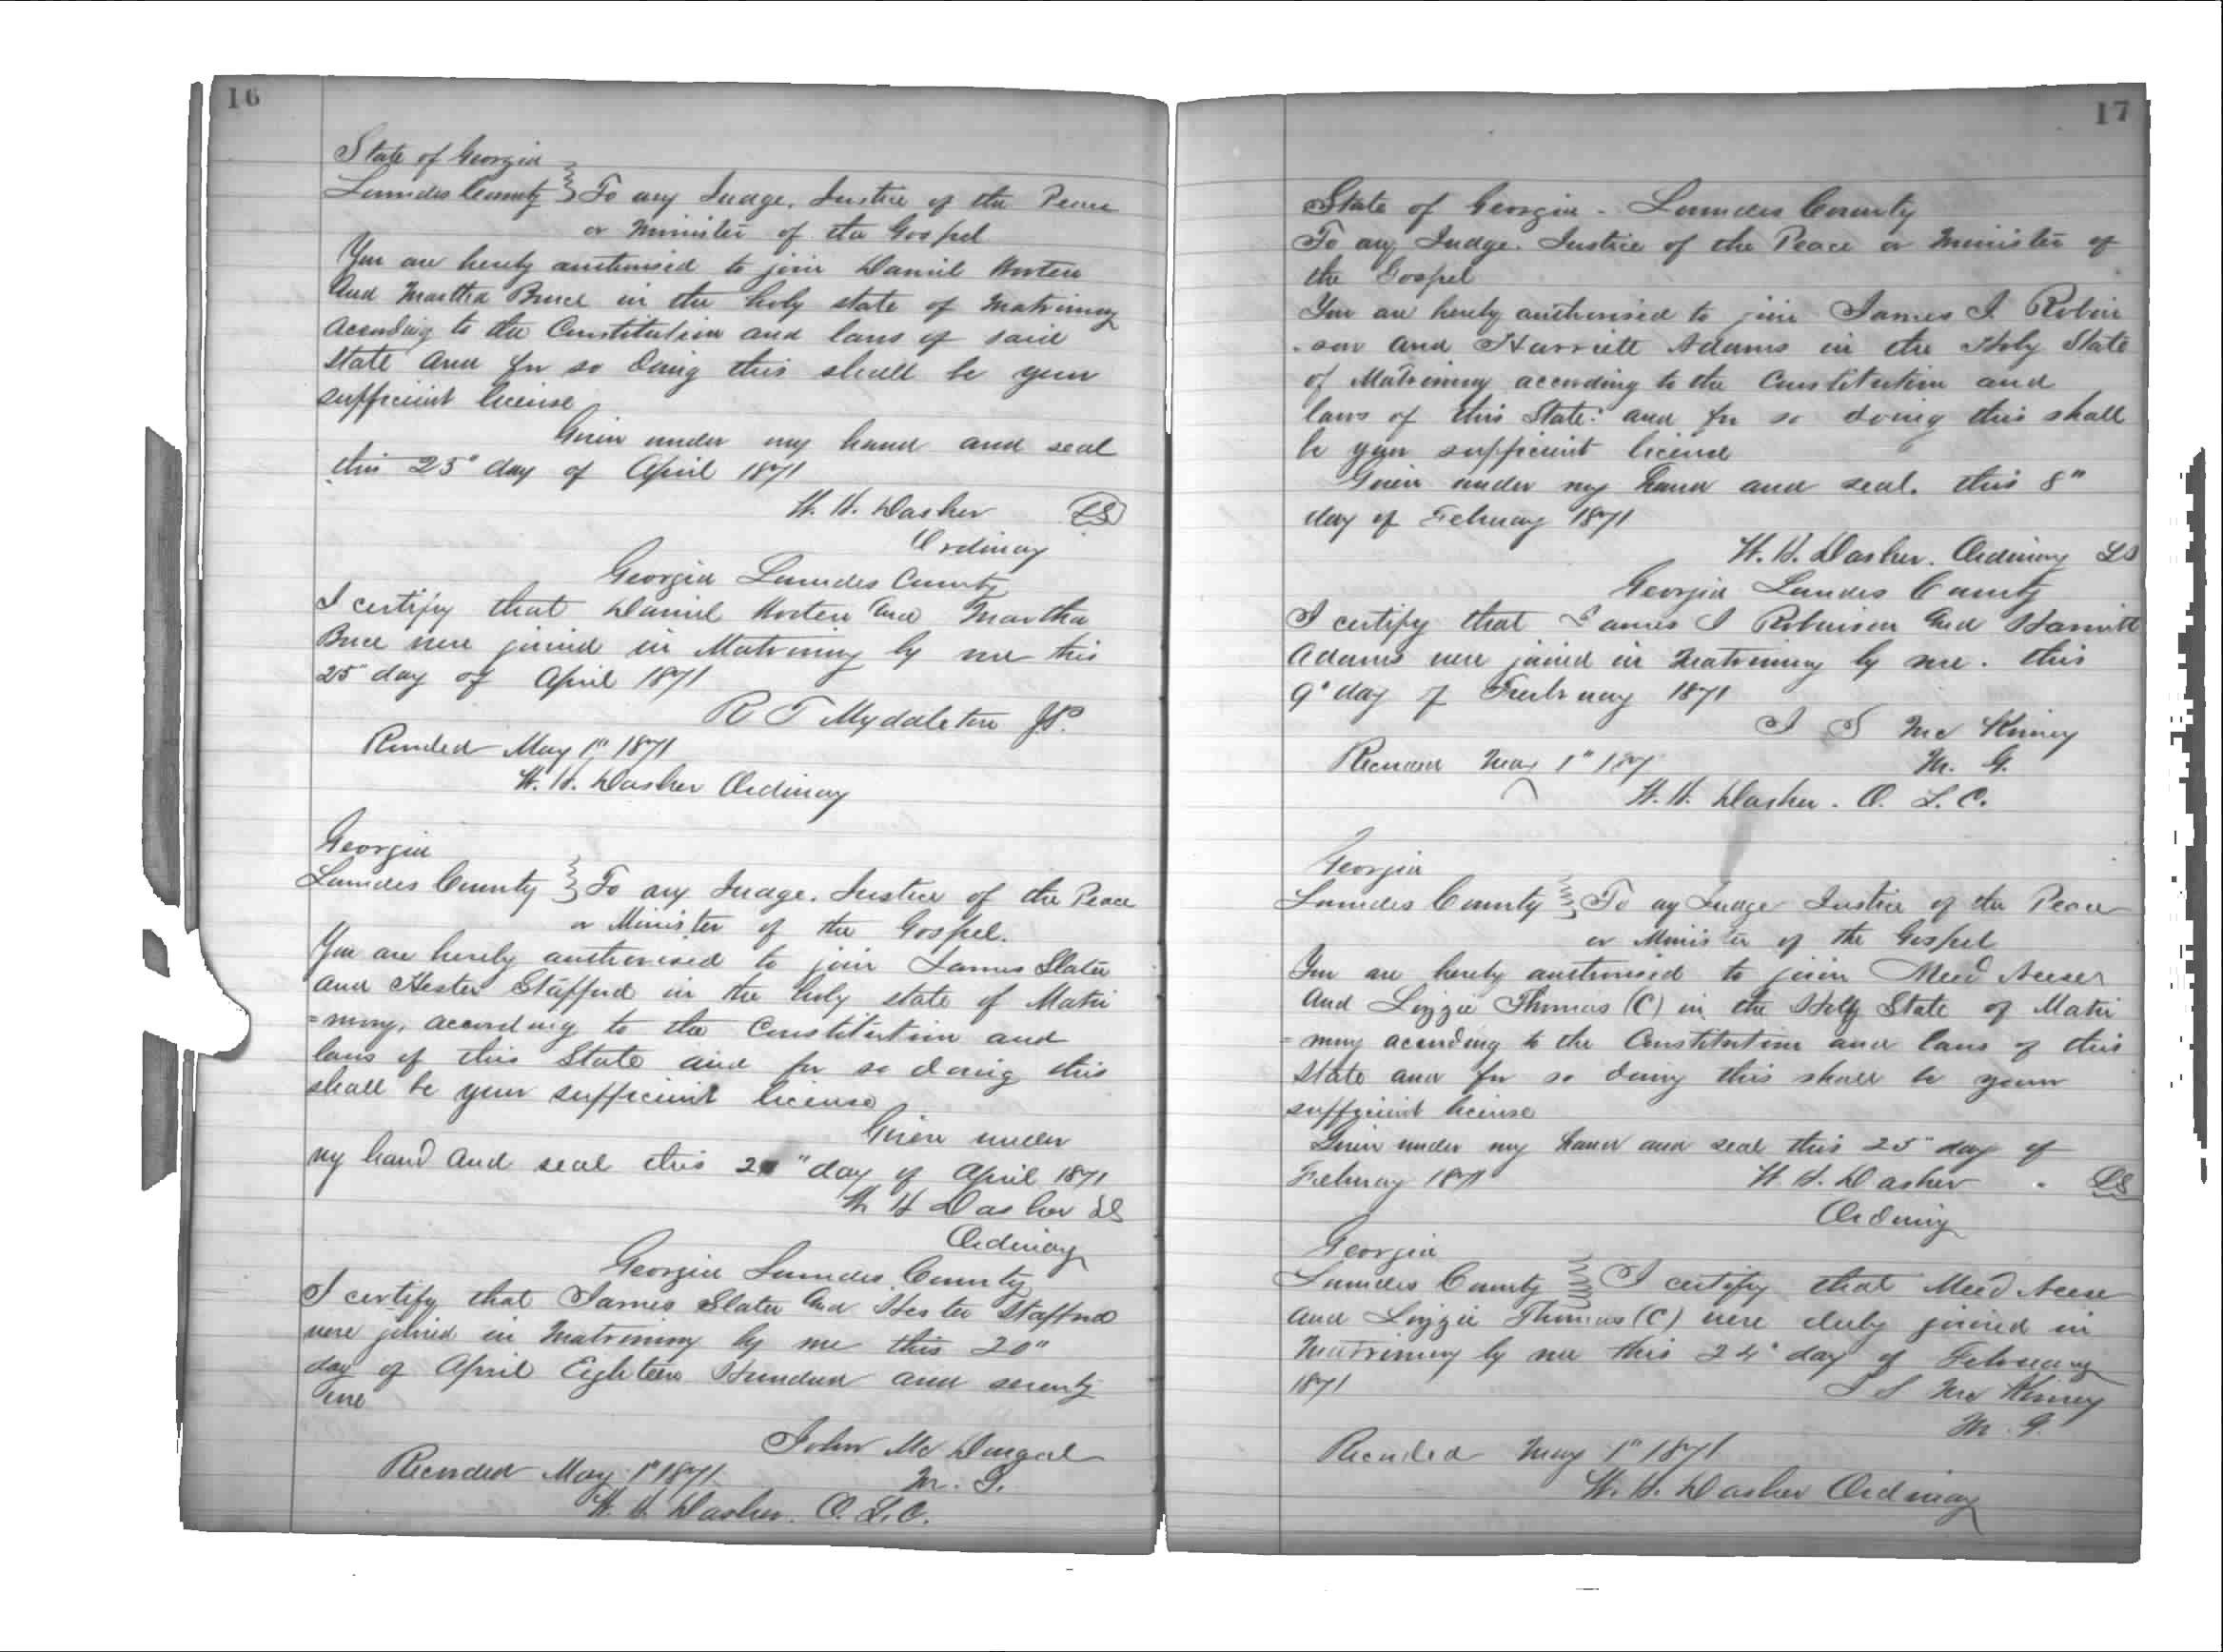 16
State of Georgia
Lowndes County } To any Judge, Justice of the Peace
or Minister of the Gospel
You are hereby authorised to join Daniel Horten
And Martha Bruce in the holy state of Matrimony
According to the Constitution and laws of said
state and for so doing this shall be your
sufficient license
Given under my hand and seal
this 25" day of April 1871
W. H. Dasher LS
Ordinary
Georgia Lowndes County
I certify that Daniel Horten and Martha
Bruce were joined in Matrimony by me this
25" day of April 1871
R T Myddleton JP.
Recorded May 1" 1871
W. H. Dasher Ordinary
Georgia
Lowndes County } To any Judge, Justice of the Peace
or Minister of the Gospel.
You are hereby authorised to join James Slater
and Hester Stafford in the holy state of Matri
=mony, according to the Constitution and
laws of this State and for so doing this
shall be your sufficient license
Given under
my hand and seal this 20" day of April 1871
W H Dasher LS
Ordinary
Georgia Lowndes County
I certify that James Slater and Hester Stafford
were joined in Matrimony by me this 20"
day of April Eighteen Hundred and seventy
one
John McDugal
Recorded May 1" 1871 M. G.
W. H. Dasher. O. L. C.
17
State of Georgia - Lowndes County
To any Judge. Justice of the Peace or Minister of
the Gospel
You are hereby authorised to join James I Robin
-son and Harriett Adams in the Holy State
of Matrimony according to the Constitution and
laws of this State: and for so doing this shall
be your sufficient license
Given under my hand and seal. this 8"
day of February 1871
W. H. Dasher. Ordinary LS
Georgia Lowndes County
I certify that James I Robinson and Harriett
Adams were joined in Matrimony by me. this
9" day of Feebruary 1871
I S McKinney
Recorded May 1" 1871 M. G.
W. H. Dasher. O. L. C.
Georgia
Lowndes County } To any Judge Justice of the Peace
or Minister of the Gospel
You are hereby authorised to join Meed Neeser
And Lizzie Thomas (C) in the Holy State of Matri
=mony according to the Constitution and laws of this
State and for so doing this shall be your
sufficient license
Given under my hand and seal this 25" day of
February 1871 W. H. Dasher. LS
Ordinary
Georgia
Lowndes County } I certify that Meed Neese
and Lizzie Thomas (C) were duly joined in
Matrimony by me this 24" day of February
1871 I S McKinney
M. G.
Recorded May 1" 1871
W. H. Dasher Ordinary